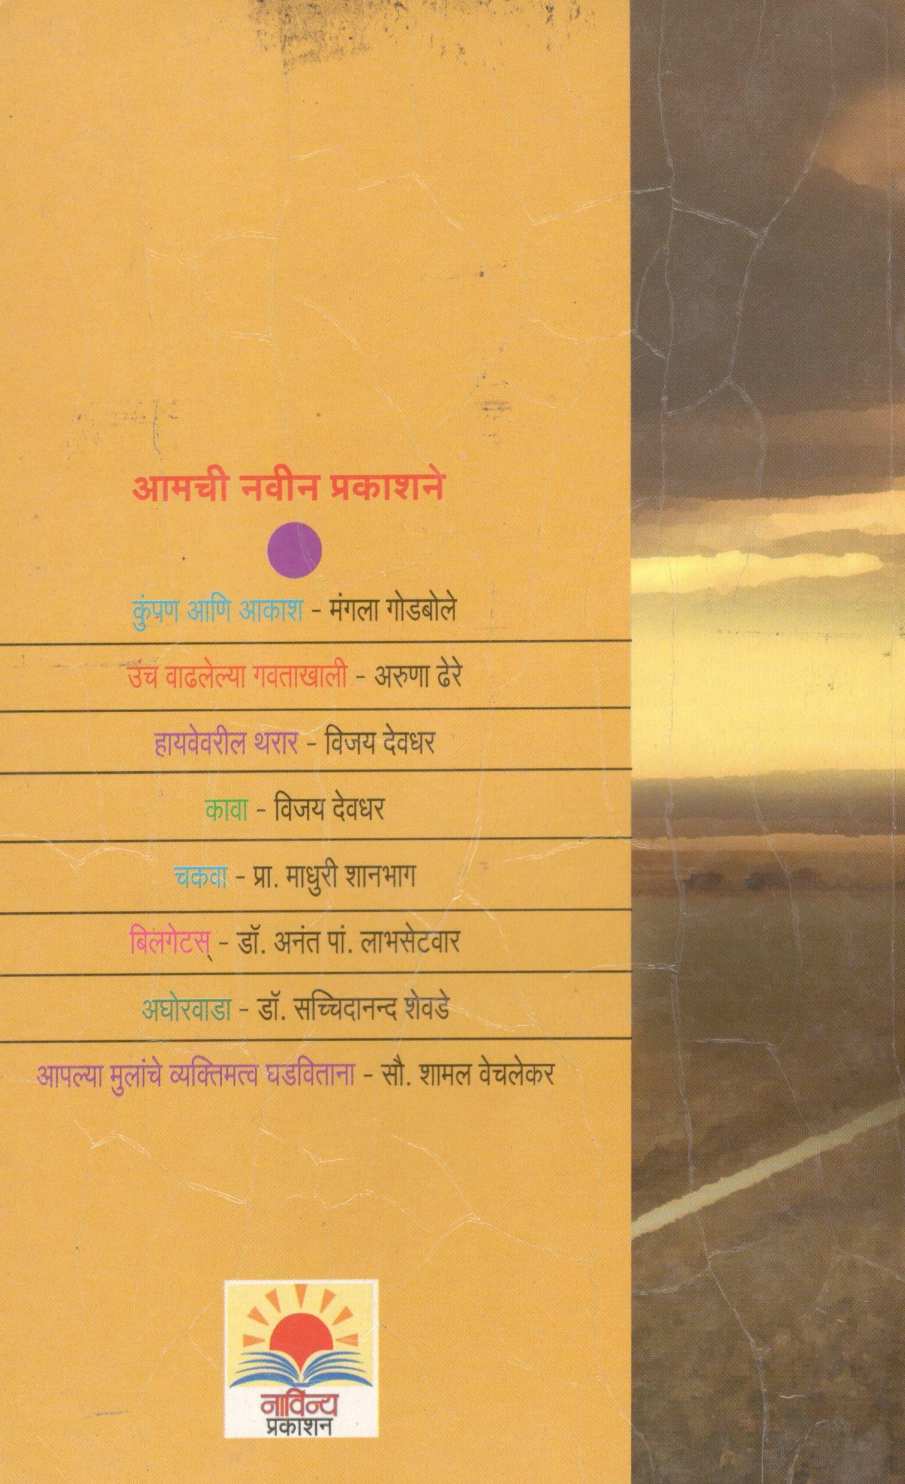 आमची नवीन प्रकाशने
कुंपण आणि आकाश - मंगला गोडबोले
उंच वाढलेल्या गवताखाली - अरुणा ढेरे
हायवेवरील थरार - विजय देवधर
कावा - विजय देवधर
चकवा - प्रा. माधुरी शानभाग
बिलगेटस् - डॉ. अनंत पां. लाभसेटवार
अघोरवाडा - डॉ. सच्चिदानन्द शेवडे
आपल्या मुलांचे व्यक्तिमत्व घडविताना - सौ. शामल वेचलेकर
नाविन्य
प्रकाशन